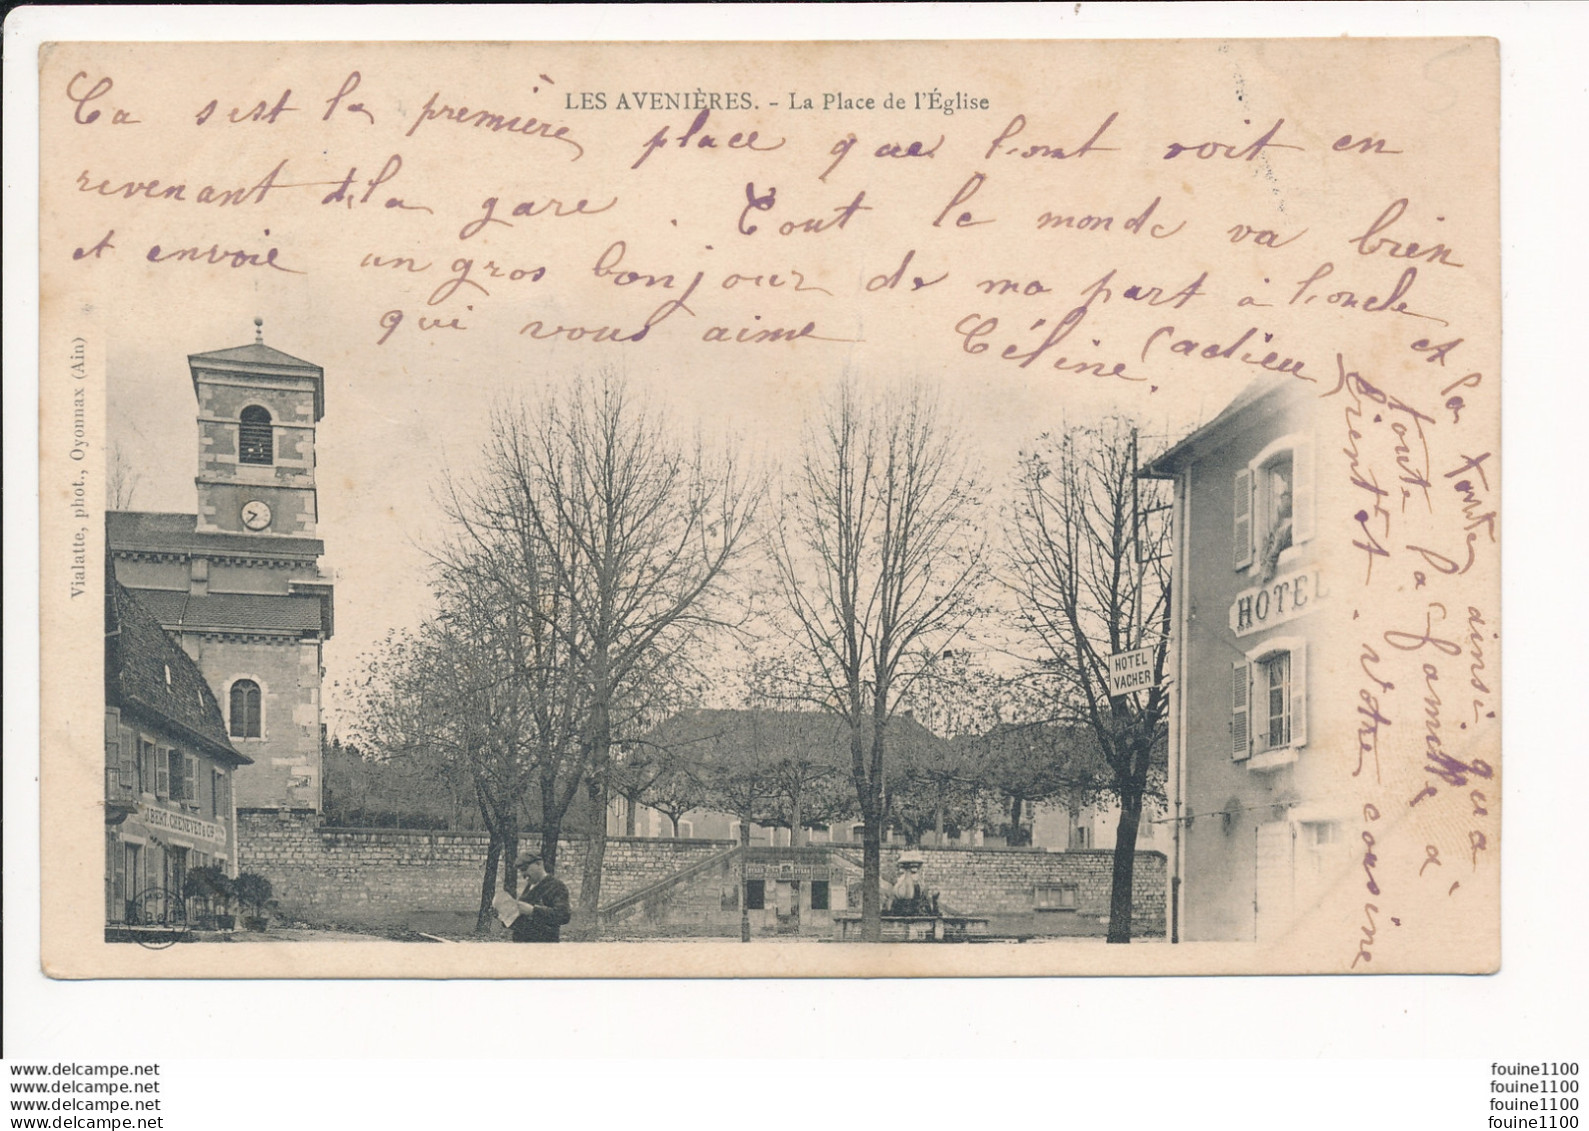 LES AVENIÈRES. - La Place de l'Église
Ca s est la première place que l'ont voit en
revenant de la gare . Tout le monde va bien
et envoie un gros bonjour de ma part à l'oncle
et la tante ainsi qua
toute la famille à
bientôt - Votre cousine
qui vous aime Céline. (adieu)
Vialatte, phot., Oyonnax (Ain)
HÔTEL
HOTEL
VACHER
J. BERT. CHENEVET & Cie
www.delcampe.net
www.delcampe.net
www.delcampe.net
www.delcampe.net
fouine1100
fouine1100
fouine1100
fouine1100